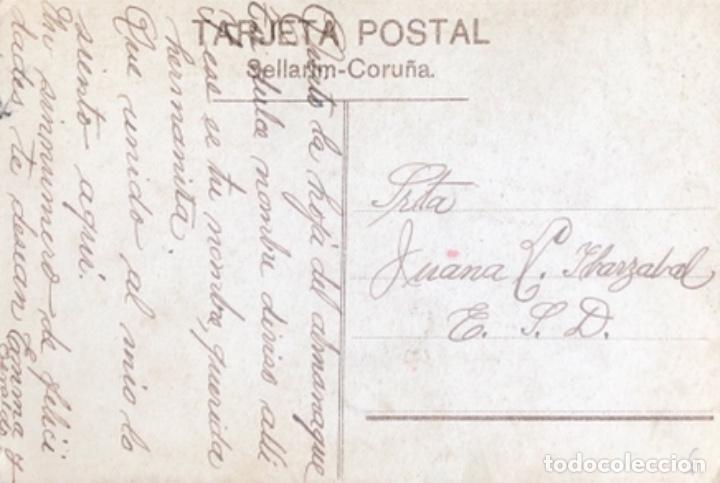 TARJETA POSTAL
Sellarim-Coruña.
la hoja del almanaque
Tu dulce nombre diviso allí
ese es tu nombre, querida
hermanita.
Que unido al mio lo
siento aquí.
Un sinnumero de felici
dades te desean Emma y
Srta
Juana C. Ibarzabal
E. S. D.
todocoleccion